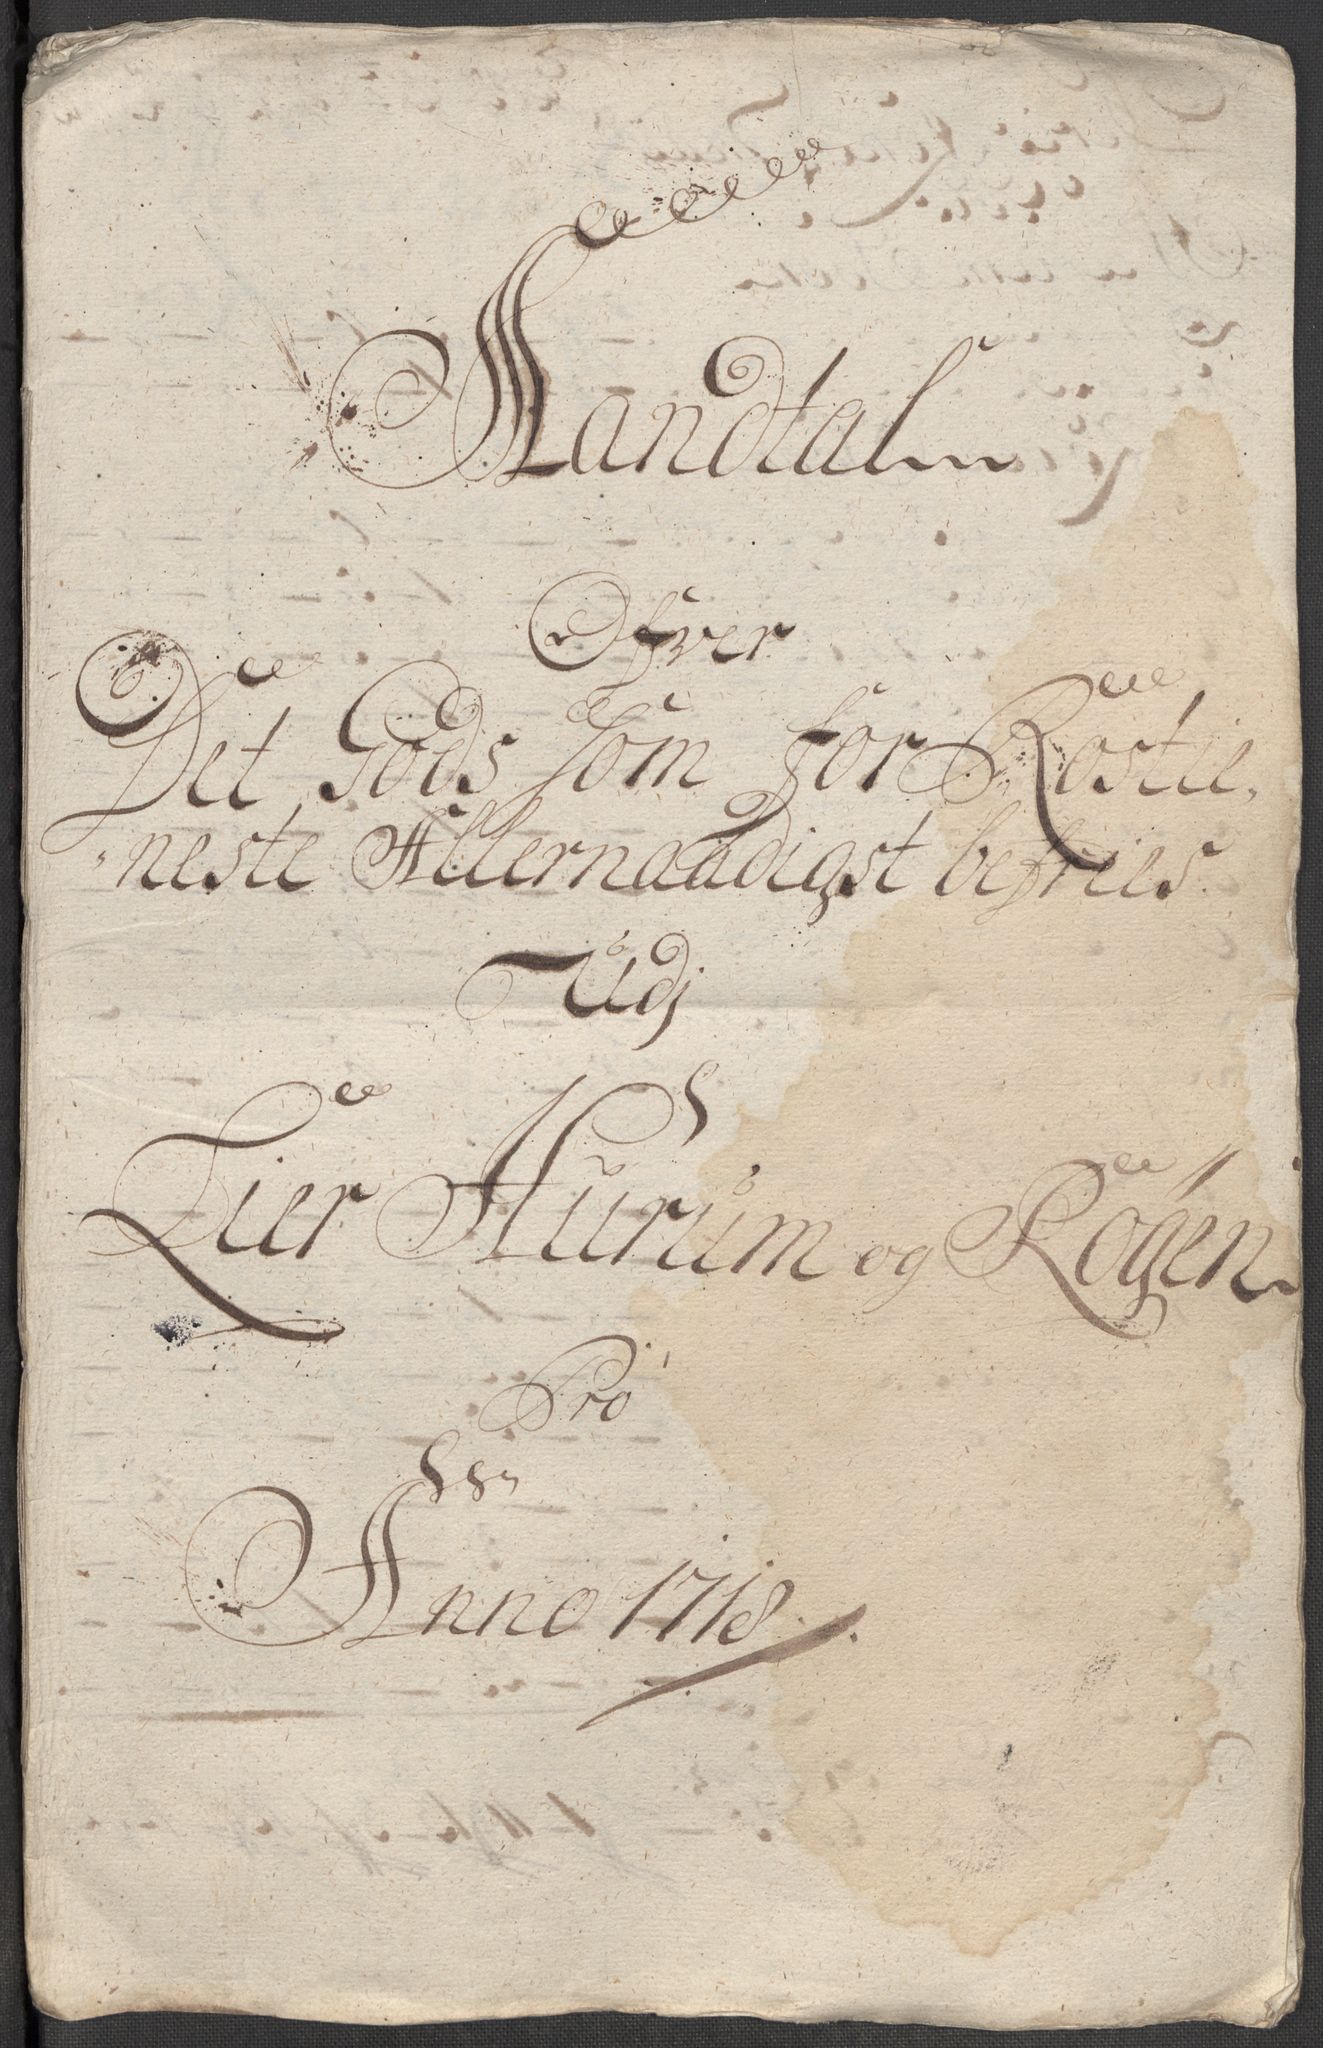 Mandtal
Ofver
Det Gods som for Rostie,
neste Allernaadigst befries
Udj
Lier Hurum og Røgen
Pro
Anno 1718.